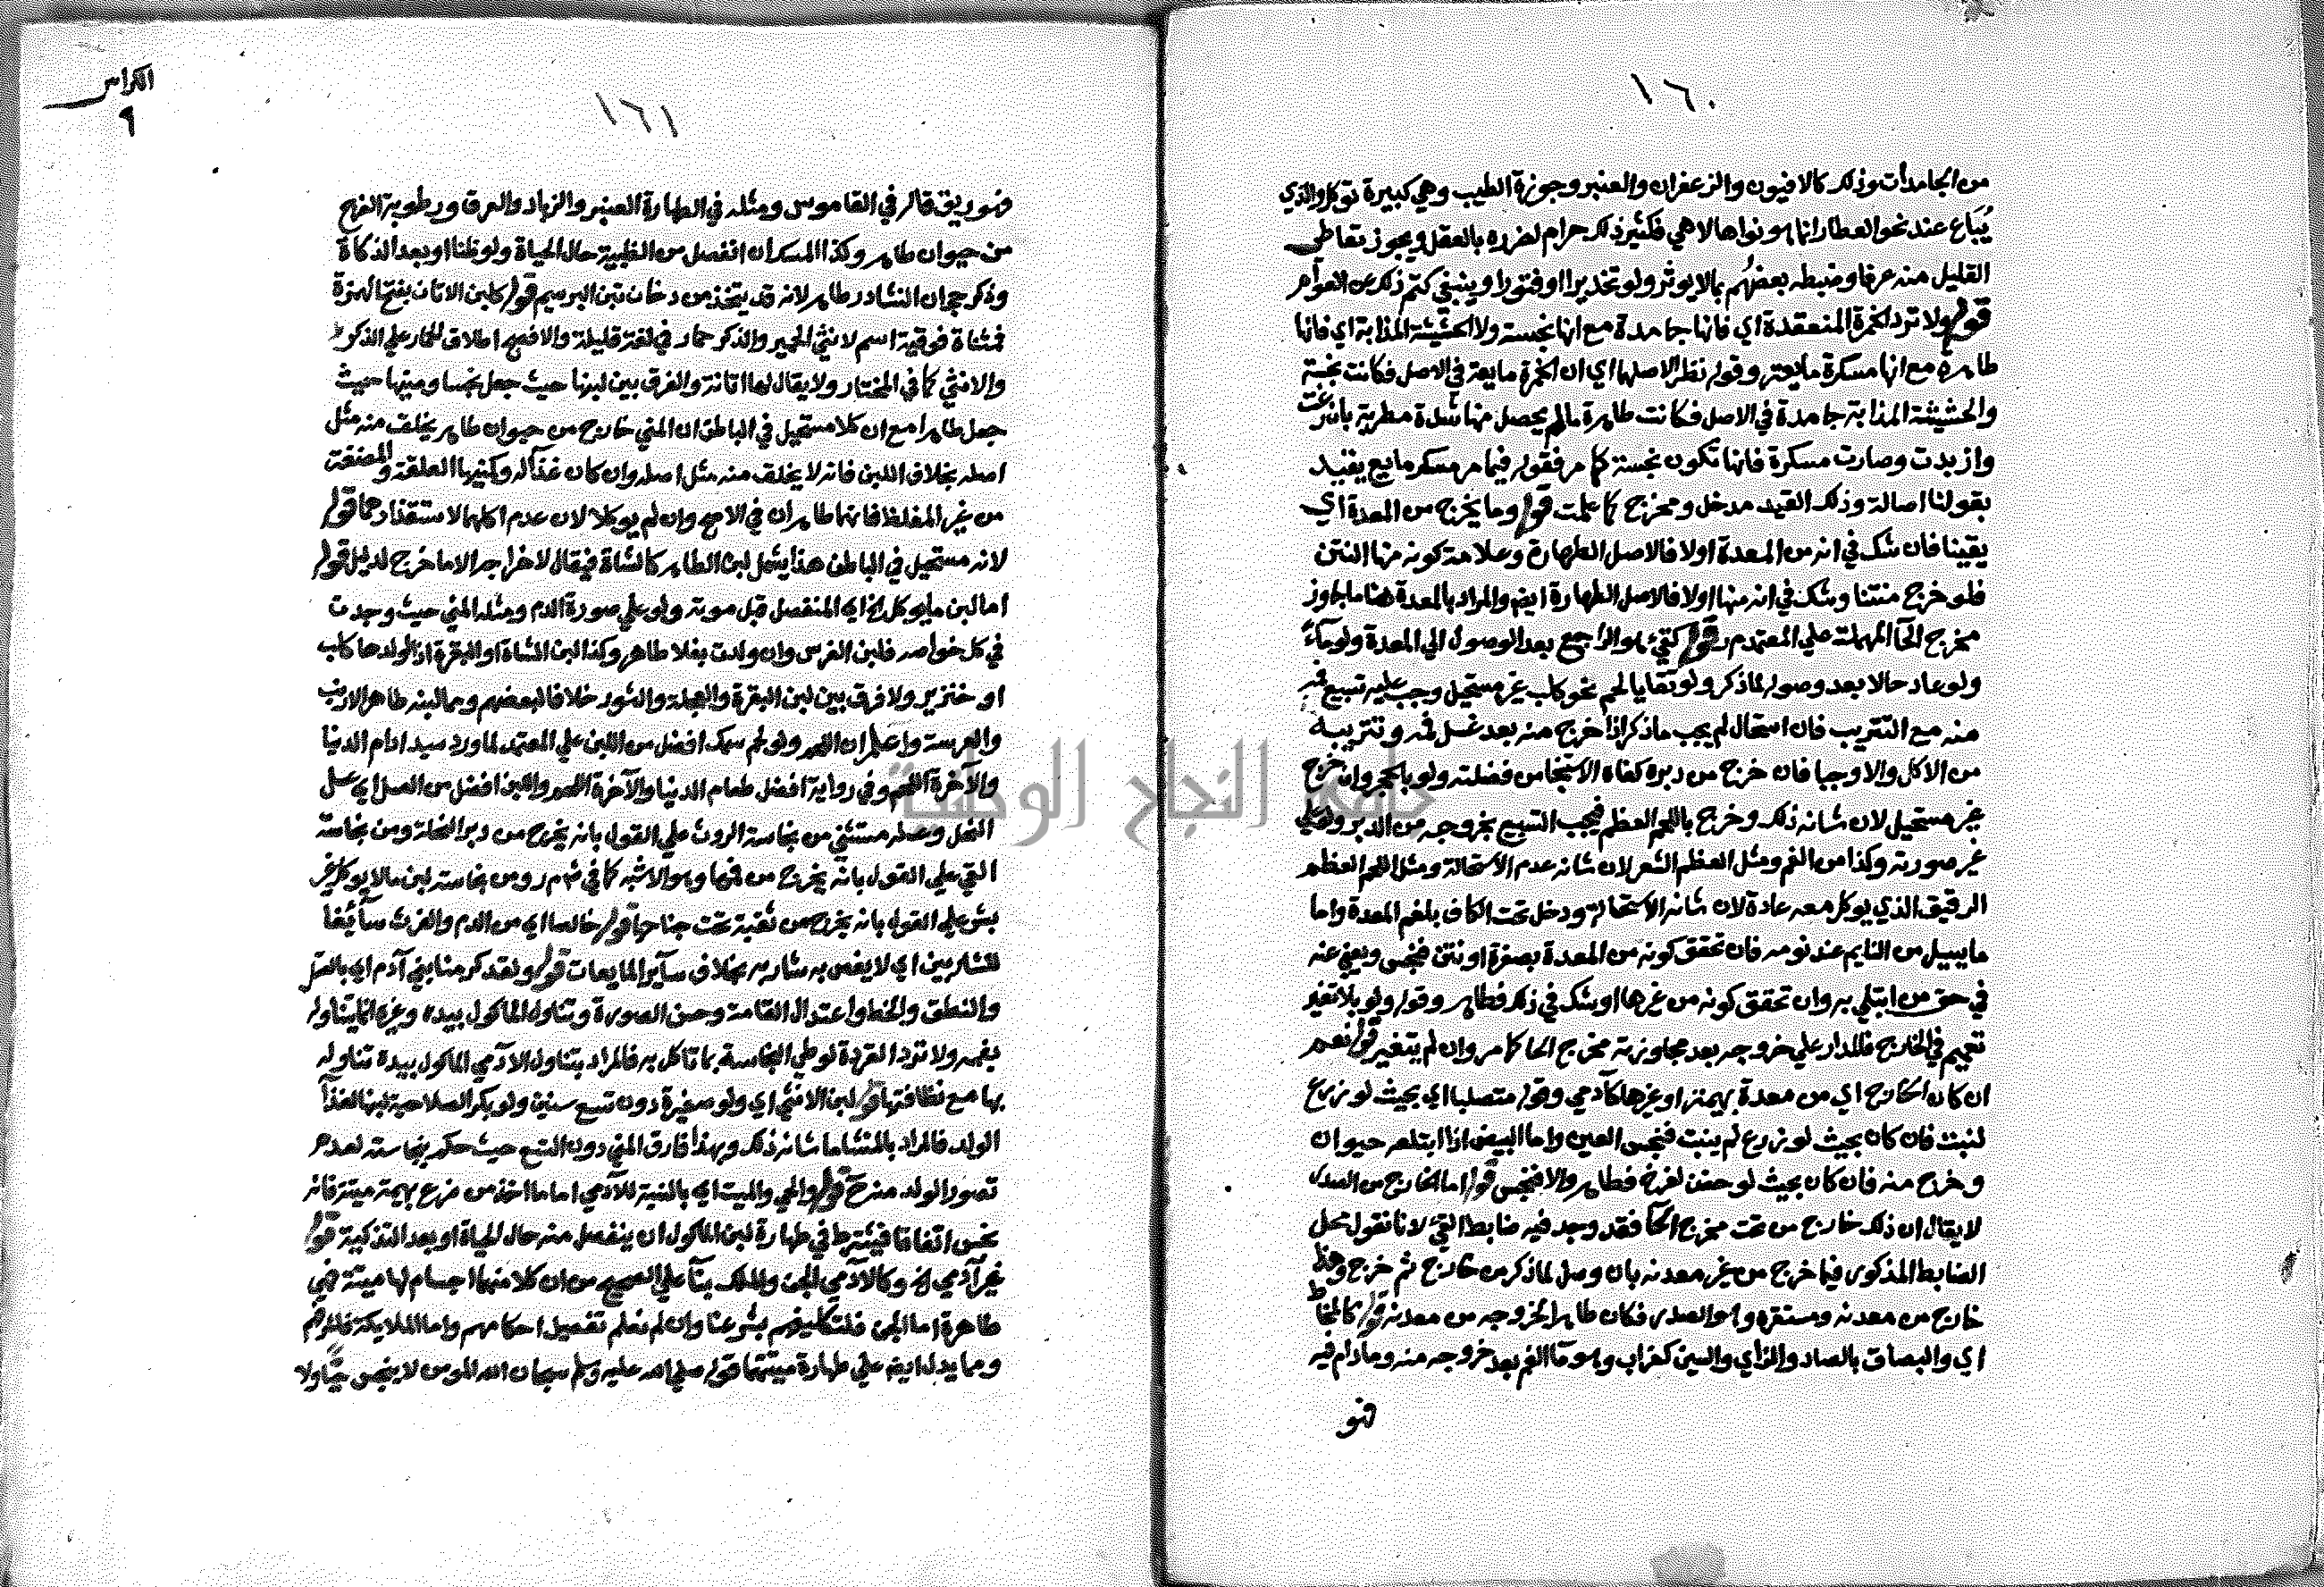 ١٦٠
من الجامدات وذلك كالافيون والزعفران والعنبر وجوزة الطيب وهي كبيرة توكل والذي
يُبَاع عند نحو العطار انما هو نواها لا هي فكثير ذلك حرام لضرره بالعقل ويجوز تعاطي
القليل منه عرفا وضبطه بعضهُم بما لا يوثر ولو تخديرا او فتورا وينبغي كتم ذلك عن العوام
قوله ولا ترد الخمرة المنعقدة اي فانها جامدة مع انها نجسة ولا الحشيشة المذابة اي فانها
طاهرة مع انها مسكرة مايعة وقوله نظرا لاصلها اي ان الخمرة مايعة في الاصل فكانت نجسة
والحشيشة المذابة جامدة في الاصل فكانت طاهرة ما لم يحصل منها شدة مطربة بان رغت
وازبدت وصارت مسكرة فانها تكون نجسة كما مر فقوله فيما مر مسكر مايع يقيد
بقولنا اصالة وذلك القيد مدخل ومخرج كما علمت قوله وما يخرج من المعدة اي
يقينا فان شك في انه من المعدة اولا فالاصل الطهارة وعلامة كونه منها النتن
فلو خرج منتنا وشك في انه منها اولا فالاصل الطهارة ايضا والمراد بالمعدة هنا ما جاوز
مخرج الحا المهملة علي المعتمد م ر قوله كقيء هو الراجع بعد الوصول الي المعدة ولو ماءً
ولو عاد حالا بعد وصوله لما ذكر ولو تقايا لحم نحو كلب غير مستحيل وجب عليه تسبيع فمه
منه مع التتريب فان استحال لم يجب ما ذكر اذا خرج منه بعد غسل فمه وتتريبه
من الاكل والا وجبا فان خرج من دبره كفاه الاستنجا من فضلته ولو بالحجر وان خرج
غير مستحيل لان شانه ذلك وخرج باللحم العظم فيجب التسبيع بخروجه من الدبر ولو علي
غير صورته وكذا من الفم ومثل العظم الشعر لان شانه عدم الاستحالة ومثل اللحم العظم
الرقيق الذي يوكل معه عادة لان شانه الاستحالة ودخل تحت الكاف بلغم المعدة واما
ما يسيل من النايم عند نومه فان تحقق كونه من المعدة بصفرة او نتن فنجس ويعفي عنه
في حق من ابتلي به وان تحقق كونه من غيرها او شك في ذلك فطاهر وقوله ولو بلا تغير
تعميم في الخارج فالمدار علي خروجه بعد مجاوزته مخرج الحا كما مر وان لم يتغير قوله نعم
ان كان الخارج اي من معدة بهيمة او غيرها كآدمي وقوله متصلبا اي بحيث لو زرع
لنبت فان كان بحيث لو زرع لم ينبت فنجس العين واما البيض اذا ابتلعه حيوان
وخرج منه فان كان بحيث لو حضن لفرخ فطاهر والا فنجس قوله اما الخارج من الصدر
لا يقال ان ذلك خارج من تحت مخرج الحآ فقد وجد فيه ضابط القيء لانا نقول محل
الضابط المذكور فيما خرج من غير معدنه بان وصل لما ذكر من خارج ثم خرج وهذا
خارج من معدنه ومستقره وهو الصدر فكان طاهرا لخروجه من معدنه قوله كالمخاط
اي والبصاق بالصاد والزاي والسين كغراب وهو ماء الفم بعد خروجه منه وما دام فيه
فهو
الكراس
٩
١٦١
فهو ريق قاله في القاموس ومثله في الطهارة العنبر والزباد والعرق ورطوبة الفرج
من حيوان طاهر وكذا المسك ان انفصل من الظبية حال الحياة ولو ظنا او بعد الذكاة
وذكر حج ان النشادر طاهر لانه قد يتخذ من دخان تبن البرسيم قوله كلبن الاتان بفتح الهمزة
فمثناة فوقية اسم لانثي الحمير والذكر حمار في لغة قليلة والافصح اطلاق الحمار علي الذكر
والانثي كما في المختار ولا يقال لها اتانة والفرق بين لبنها حيث جعل نجسا ومنيها حيث
جعل طاهرا مع ان كلا مستحيل في الباطن ان المني خارج من حيوان طاهر يخلف منه مثل
اصله بخلاف اللبن فانه لا يخلف منه مثل اصله وان كان غذآ له وكمنيها العلقة والمضغة
من غير المغلظ فانهما طاهران في الاصح وان لم يوكلا لان عدم اكلهما لاستقذارهما قوله
لانه مستحيل في الباطن هذا يشمل لبن الطاهر كالشاة فيقال لاخراجه الا ما خرج لدليل قوله
اما لبن ما يوكل الخ اي المنفصل قبل موته ولو علي صورة الدم ومثله المني حيث وجدت
في كل خواصه فلبن الفرس وان ولدت بغلا طاهر وكذا لبن الشاة او البقرة اذا ولدها كلب
او خنزير ولا فرق بين لبن البقرة والعجلة والثور خلافا لبعضهم ومما لبنه طاهر الارنب
والعرسة واعلم ان اللحم ولو لحم سمك افضل من اللبن علي المعتمد لما ورد سيد ادام الدنيا
والآخرة اللحم وفي رواية افضل طعام الدنيا والآخرة اللحم واللبن افضل من العسل اي عسل
النحل وعسله مستثني من نجاسة الروث علي القول بانه يخرج من دبر النحلة ومن نجاسة
القيء علي القول بانه يخرج من فمها وهو الاشبه كما في ش م ر ومن نجاسة لبن ما لا يوكل غير
بشر علي القول بانه يخرج من ثقبة تحت جناحها قوله خالصا اي من الدم والفرث سآئغا
للشاربين اي لا يغص به شاربه بخلاف سآير المايعات قوله ولقد كرمنا بني آدم اي بالعقل
والنطق والخط واعتدال القامة وحسن الصورة وتناول الماكول بيده وغيره انما يتناوله
بفمه ولا ترد القردة لوطي النجاسة بما تاكل به فالمراد بتناول الآدمي الماكول بيده تناوله
بها مع نظافتها قوله لبن الانثي اي ولو صغيرة دون تسع سنين ولو بكرا لصلاحية لبنها لغذآ
الولد فالمراد بالمنشا ما شانه ذلك وبهذا فارق المني دون التسع حيث حكم بنجاسته لعدم
تصور الولد منه ح قوله والحي والميت اي بالنسبة للآدمي اما ما اخذ من ضرع بهيمة ميتة فانه
نجس اتفاقا فيشترط في طهارة لبن الماكول ان ينفصل منه حال الحياة او بعد التذكية قوله
غير آدمي الخ وكالآدمي الجن والملك بنآ علي الصحيح من ان كلا منهما اجسام لها ميتة فهي
طاهرة اما الجن فلتكليفهم بشرعنا وان لم نعلم تفصيل احكامهم واما الملايكة فلشرفهم
ومما يدل ايضا علي طهارة ميتتهما قوله صلي الله عليه وسلم سبحان الله المومن لا ينجس حيًّا ولا
جامعة النجاح الوطنية